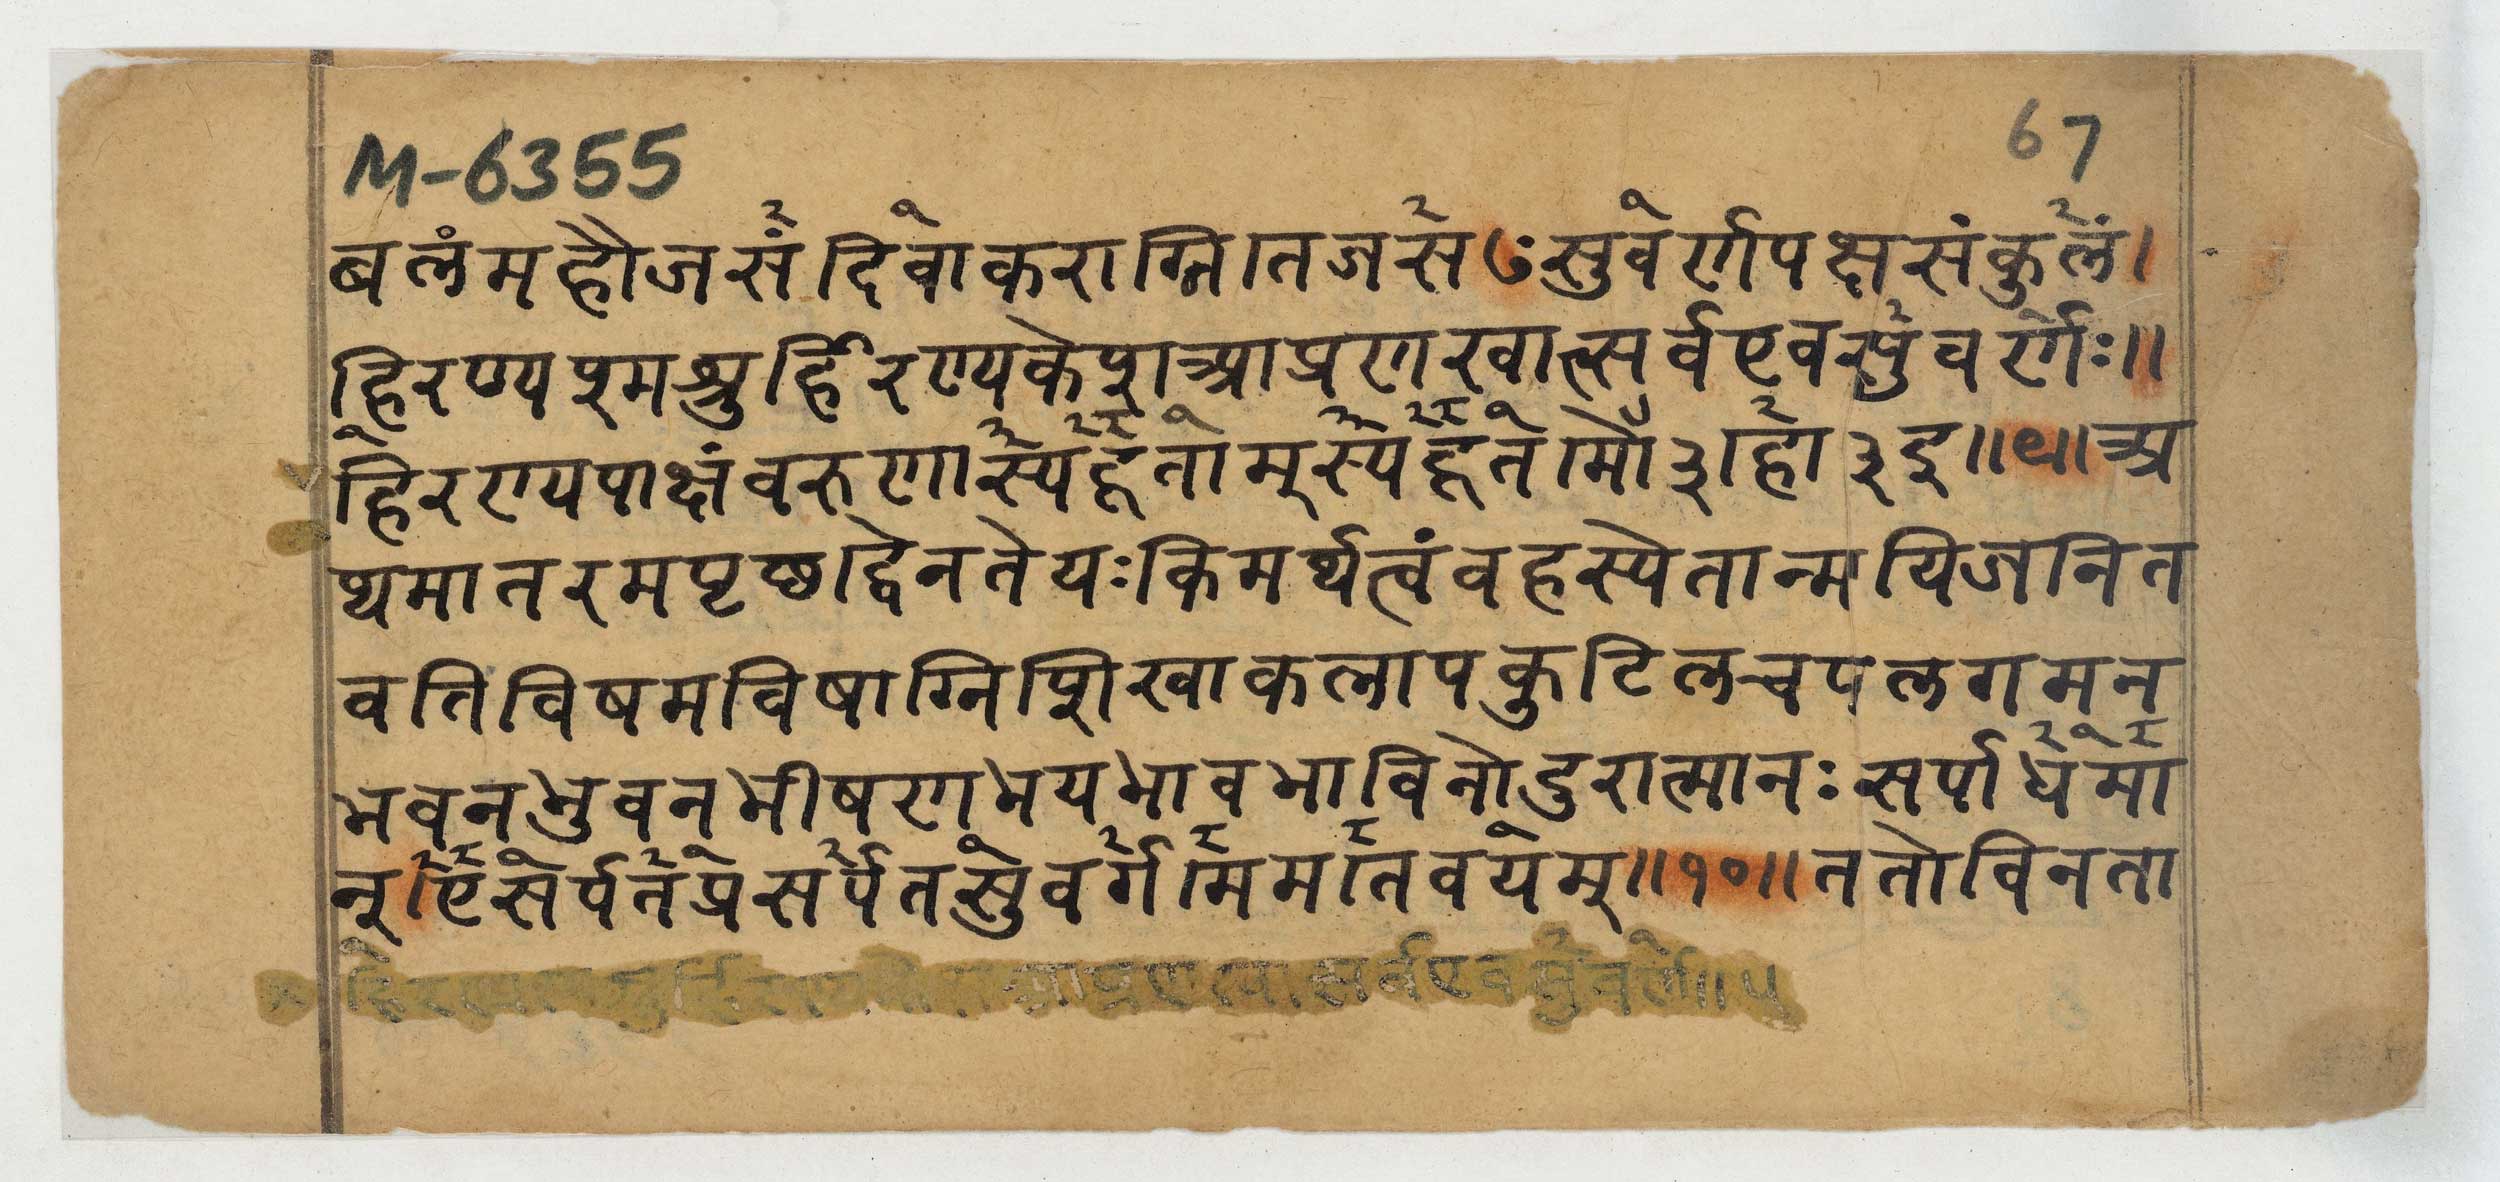 M-6355
67
बलंमहौजसंदिवाकराग्नितेजसंꣳसुवर्णपक्षसंकुलं।
हिरण्यश्मश्रुर्हिरण्यकेशआप्रणखात्सर्वएवसुवर्णः॥
हिरण्यपाक्षंवरुणास्येहूतोम्स्यैहूतोमो३।हो३इ॥९॥अ
थमातरमपृछद्वेनतेयःकिमर्थत्वंवहस्येतान्मयिजनित
वतिविषमविषाग्निशिखाकलापकुटिलचपलगमन
भवनभुवनभीषणभयभावभाविनोदुरात्मानःसर्पाधमा
न्।एसर्पतप्रसर्पतसुवर्गेममतवयम्॥१०॥ततोविनता
सर्वएवसुवर्ण॥५